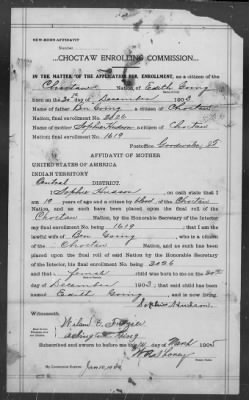 NEW-BORN AFFIDAVIT
Number
...CHOCTAW ENROLLING COMMISSION...
IN THE MATTER OF THE APPLICATION FOR ENROLLMENT, as a citizen of the
Choctaw Nation, of Edith Going
born on the 20th day of December 1903
Name of father Ben Going a citizen of Choctaw
Nation, final enrollment No. 2426
Name of mother Sophia Hudson a citizen of Choctaw
Nation, final enrollment No. 1619
Postoffice Goodwater IT
AFFIDAVIT OF MOTHER
UNITED STATES OF AMERICA
INDIAN TERRITORY
Central DISTRICT.
I Sophia Hudson, on oath state that I
am 19 years of age and a citizen by blood of the Choctaw
Nation, and as such have been placed upon the final roll of the
Choctaw Nation, by the Honorable Secretary of the Interior
my final enrollment No. being 1619; that I am the
lawful wife of Ben Going, who is a citizen
of the Choctaw Nation, and as such has been
placed upon the final roll of said Nation by the Honorable Secretary
of the Interior, his final enrollment No. being 2426
and that a female child was born to me on the 20th
day of December 1903; that said child has been
named Edith Going, and is now living.
Sophia Hudson
Witnesseth.
Subscribed and sworn to before me this day of March 1905
My Commission Expires Jan